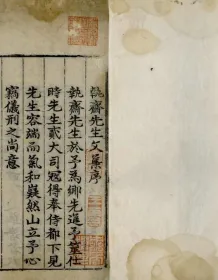 執齋先生文集序
執齋先生於予為鄉先進予筮仕
時先生貳大司寇得奉侍都下見
先生容端而氣和嶷然山立予心
竊儀刑之尚意